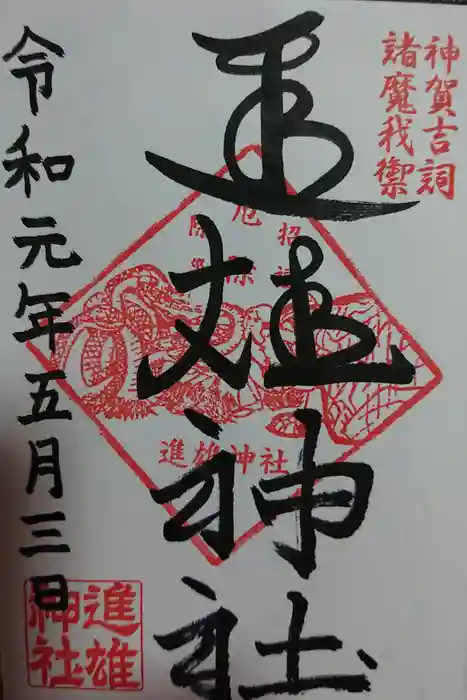 神賀吉詞
諸魔我禦
進雄神社
招福
厄除
進雄神社
令和元年五月三日
進雄
神社